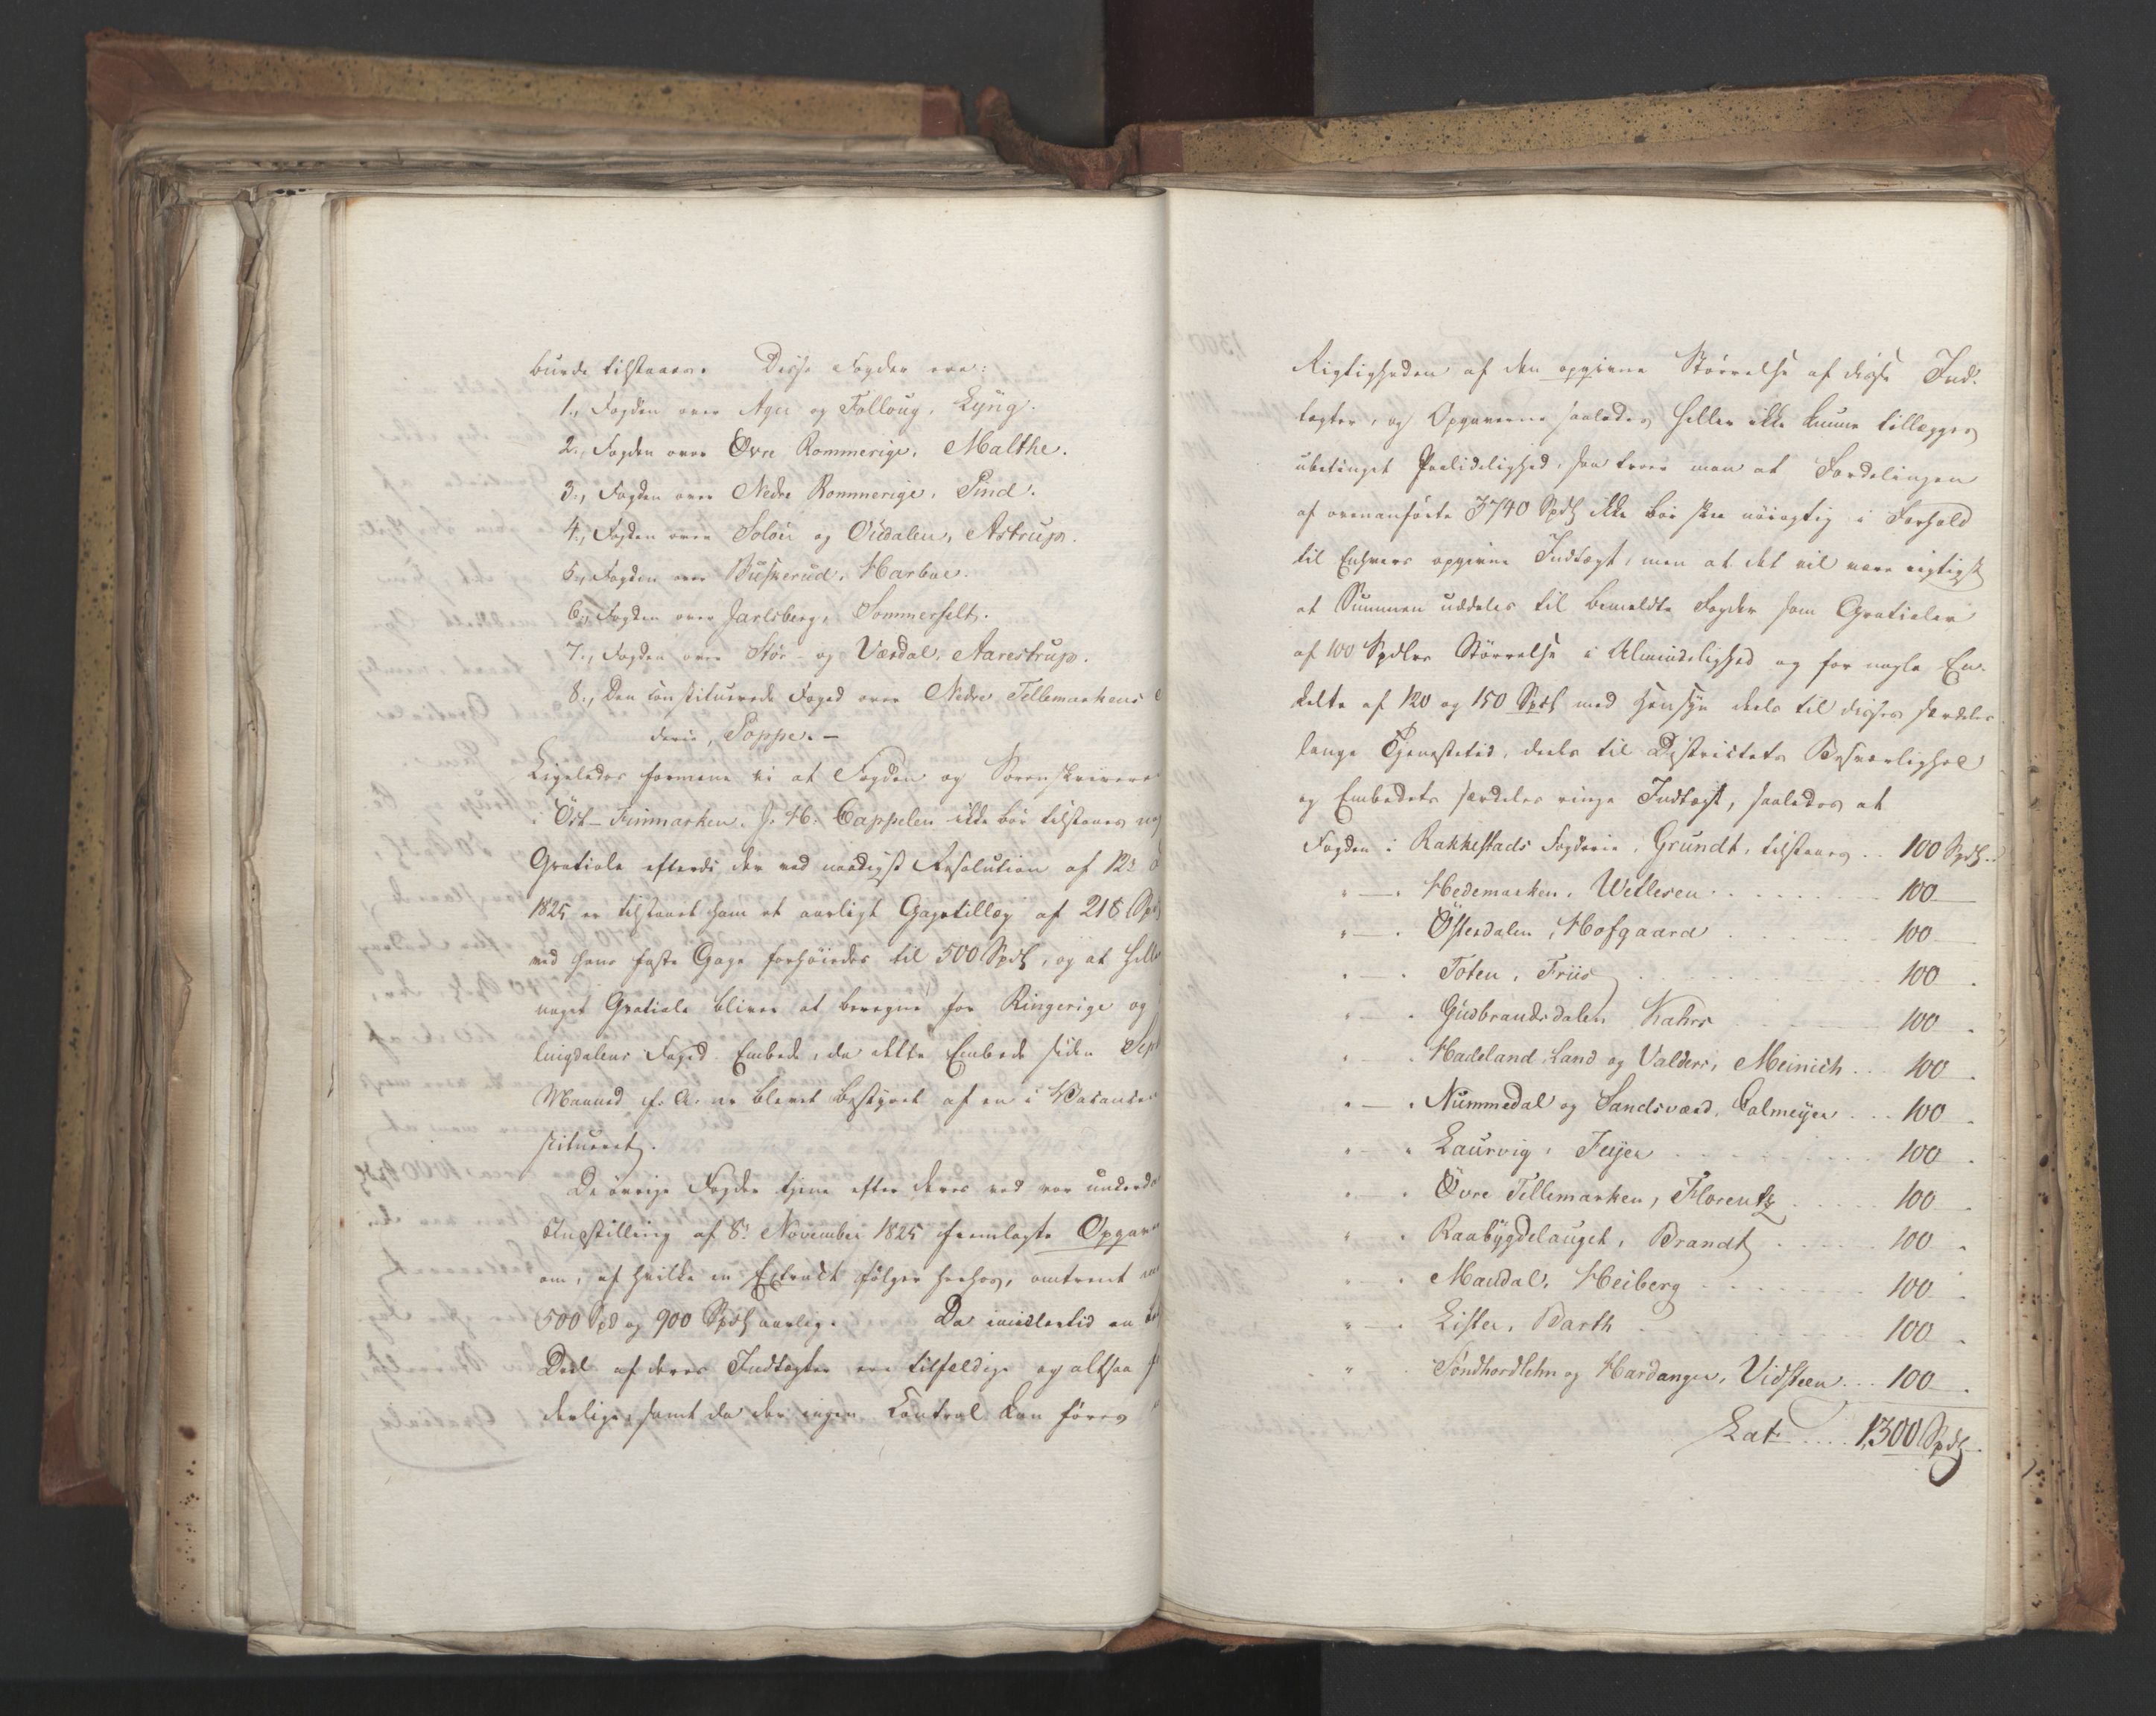 burde tilstaaes. Disse Fogder ere:
1., Fogden over Ager og Folloug, Lyng.
2., Fogden over Øvre Rommerige, Malthe.
3., Fogden over Nedre Rommerige, Pind.
4., Fogden over Soløer og Oüdalen, Astrup.
5., Fogden over Buskerud, Harboe.
6., Fogden over Jarlsberg, Sommerfelt.
7., Fogden over Stør- og Værdal, Aarestrup.
8., Den constituerede Foged over Nedre Tellemarkens
derie, Poppe. -
Ligeledes formene vi at Fogden og Sorenskriveren
i Öst-Finmarken, J. H. Cappelen ikke bör tilstaaes
Gratiale efterdi der ved naadigst Resolution af 12
1825 er tilstaaet ham et aarligt Gagetillæg af 218
ved hans faste Gage forhöiedes til 500 Spdlr, og at
noget Gratiale bliver at beregne for Ringerige og
lingdalens Foged-Embede, da dette Embede siden
Maaned f. A. er blevet bestyret af en i Vacance
stitueret.
De övrige Fogder tjene efter deres ved vor
Indstilling af 8de November 1825 fremlagte Opgaver
om, af hvilke en Extract følger hoshos, omtrent
500 Spd og 900 Spdlr aarlig. Da imidlertid en
Deel af deres Indtægter ere tilfeldige og altsaa
derlige, samt da der ingen Control kan föres
Rigtigheden af den opgivne Störrelse af disse Ind-
tægter, og Opgaverne saaledes heller ikke kunne tillægges
ubetinget Paalidelighed, saa troer man at Fordelingen
af ovenanförte 3740 Spdlr ikke bör skee nöiagtig i Forhold
til Enhvers opgivne Indtægt, men at det vil være rigtigst
at Summen uddeles til bemeldte Fogder som Gratialer
af 100 Spdlrs Störrelse i Almindelighed og for nogle En-
kelte af 120 og 150 Spdlr med Hensyn deels til disses særdeles
lange Tjenestetid, deels til Districtets Besværlighed
og Embedets særdeles ringe Indtægt, saaledes at
Fogden i Rakkestads Fogderie, Grundt, tilstaaes .. 100 Spdlr.
" — . Hedemarken, Wetlesen . . . . . . . 100
" — . Österdalen, Hofgaard . . . . . . 100
" — . Toten, Friis . . . . . . . . 100
" — . Gudbrandsdalen Kahrs . . . . . . 100
" — . Hadeland, Land og Valders, Meinich . . 100
" — . Nummedal og Sandsværd, Colmeyer . . . 100
" — . Laurvig, Feyer . . . . . . . . 100
" . Övre Tellemarken, Florentz . . . . . 100
" . Raabygdelauget, Brandt . . . . . 100
" . Mandal, Heiberg . . . . . . . 100
" — . Lister, Barth . . . . . . . . 100
" . Söndhordlehn og Hardanger, Vidsteen . . . 100
Lat. .... 1,300 Spdlr.